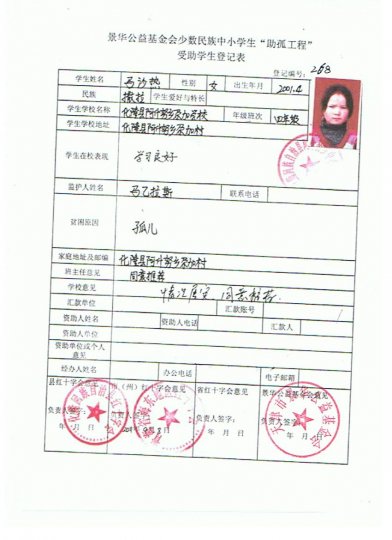 景华公益基金会少数民族中小学生“助孤工程”
受助学生登记表
登记编号：268
学生姓名 马沙热 性别 女 出生年月 2001.4
民族 撒拉 学生爱好与特长
学生学校名称 化隆县阿什努乡 学校 年级班次 四年级
学生学校地址 化隆县阿什努乡
学生在校表现 学习良好
监护人姓名 马乙拉斯 联系电话
贫困原因 孤儿
家庭地址及邮编 化隆县阿什努乡
班主任意见 同意推荐
学校意见 情况属实 同意推荐
汇款单位 汇款账号
资助人姓名 资助人电话 汇款人
资助人单位
资助单位或个人
意见
经办人姓名 办公电话 电子邮箱
县红十字会意见 市（州）红十字会意见 省红十字会意见 景华公益基金会意见
负责人签字： 负责人签字： 负责人签字： 负责人签字：
年 月 日 年 月 日 年 月 日 年 月 日